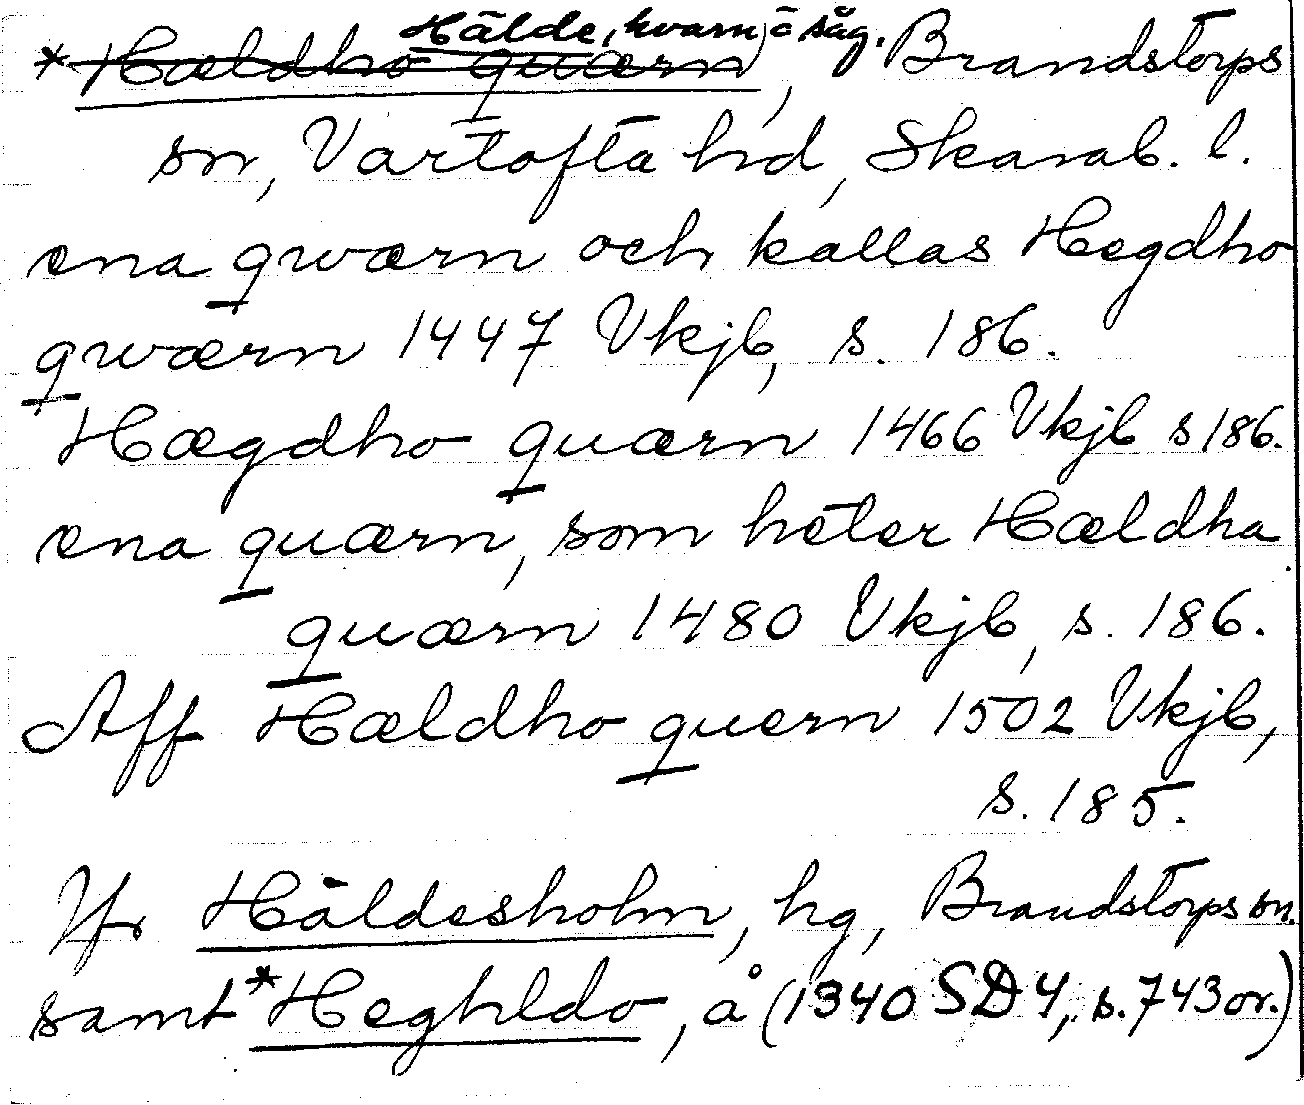 Hälde, kvarn o såg.
*Hældho quærn, Brandstorps
sn, Vartofta hd, Skarab. l.
ena qwærn och kallas Hegdho
qwærn 1447 Vkjb, s. 186.
Hægdho quærn 1466 Vkjb s 186.
ena quærn, som heter Hældha
quærn 1480 Vkjb, s. 186.
Aff Hældho quern 1502 Vkjb,
s. 185.
Jfr Häldesholm, hg, Brandstorps sn.
samt *Heghldo, å (1340 SD 4, s. 743 or.)